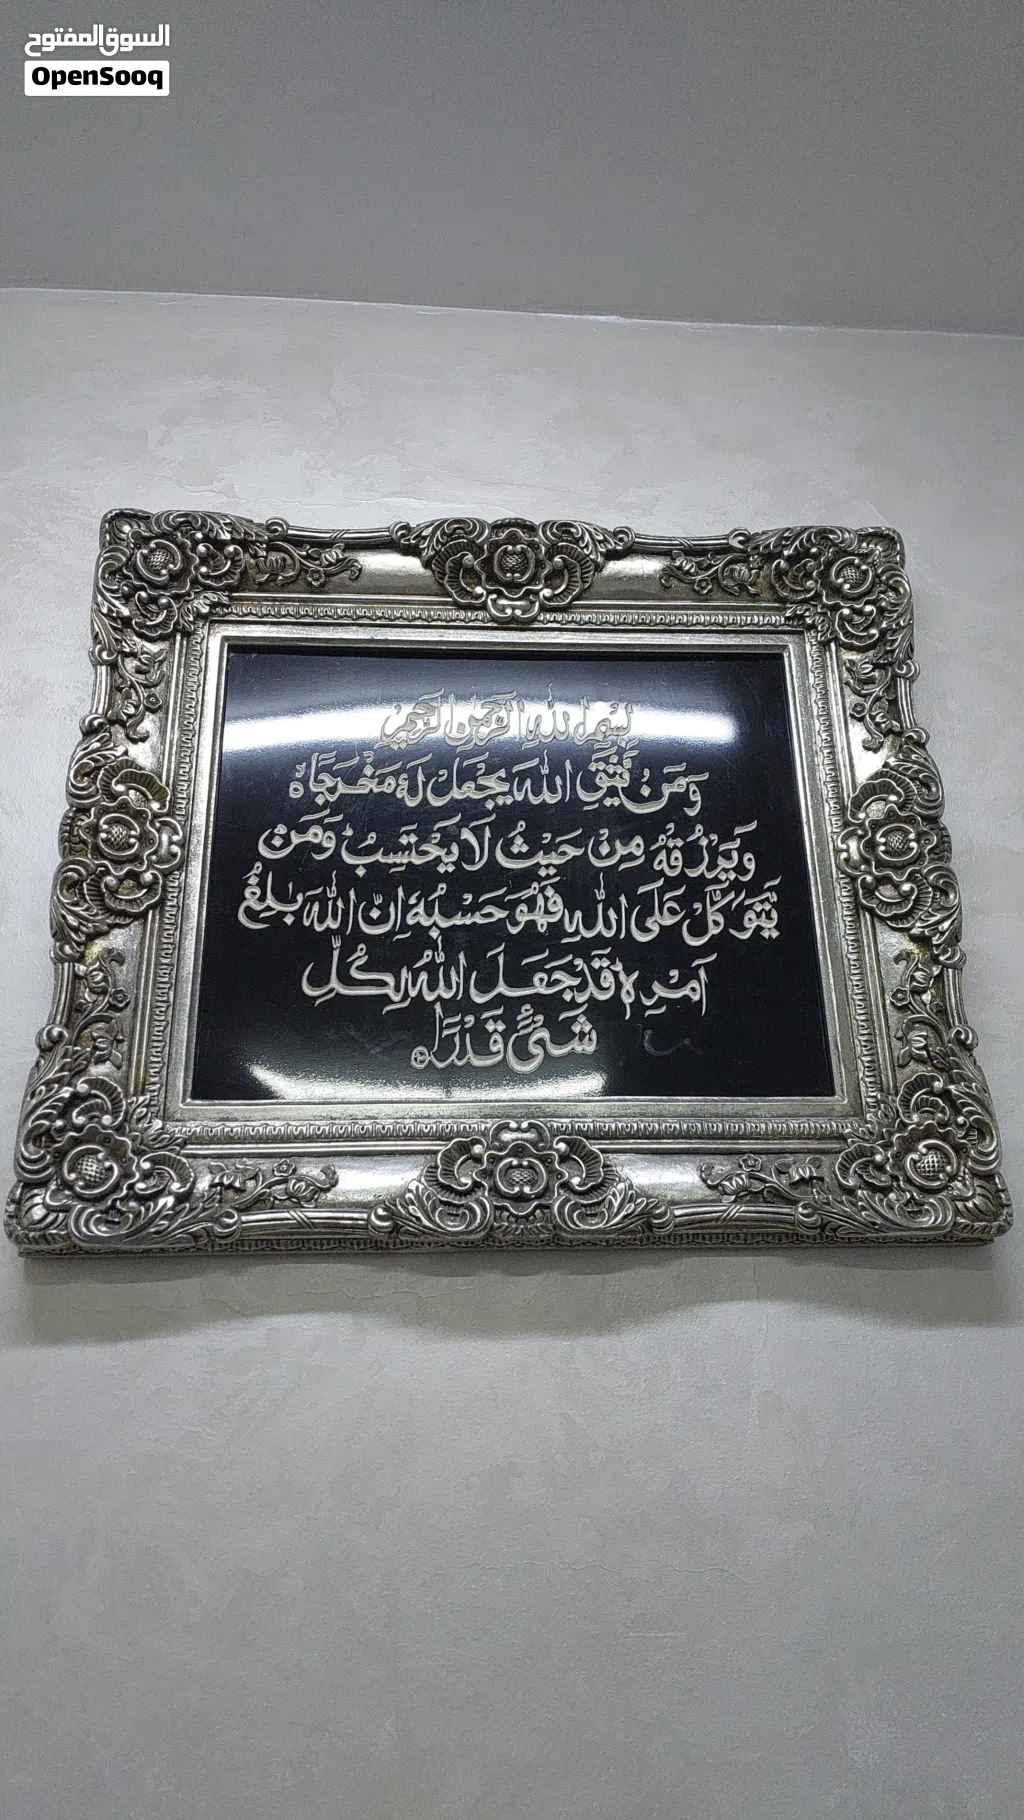 السوق المفتوح
OpenSooq
بِسْمِ اللهِ الرَّحْمٰنِ الرَّحِيْمِ
وَمَنْ يَّتَّقِ اللهَ يَجْعَلْ لَهٗ مَخْرَجًا
وَيَرْزُقْهُ مِنْ حَيْثُ لَا يَحْتَسِبُ ؕ وَمَنْ
يَّتَوَكَّلْ عَلَى اللهِ فَهُوَ حَسْبُهٗ اِنَّ اللهَ بٰلِغُ
اَمْرِهٖ قَدْ جَعَلَ اللهُ لِكُلِّ
شَىْءٍ قَدْرًا